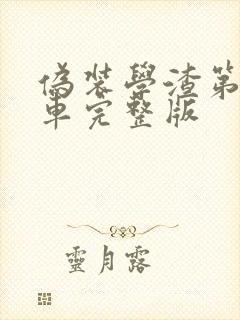 偽裝學渣第
車完整版
靈月露